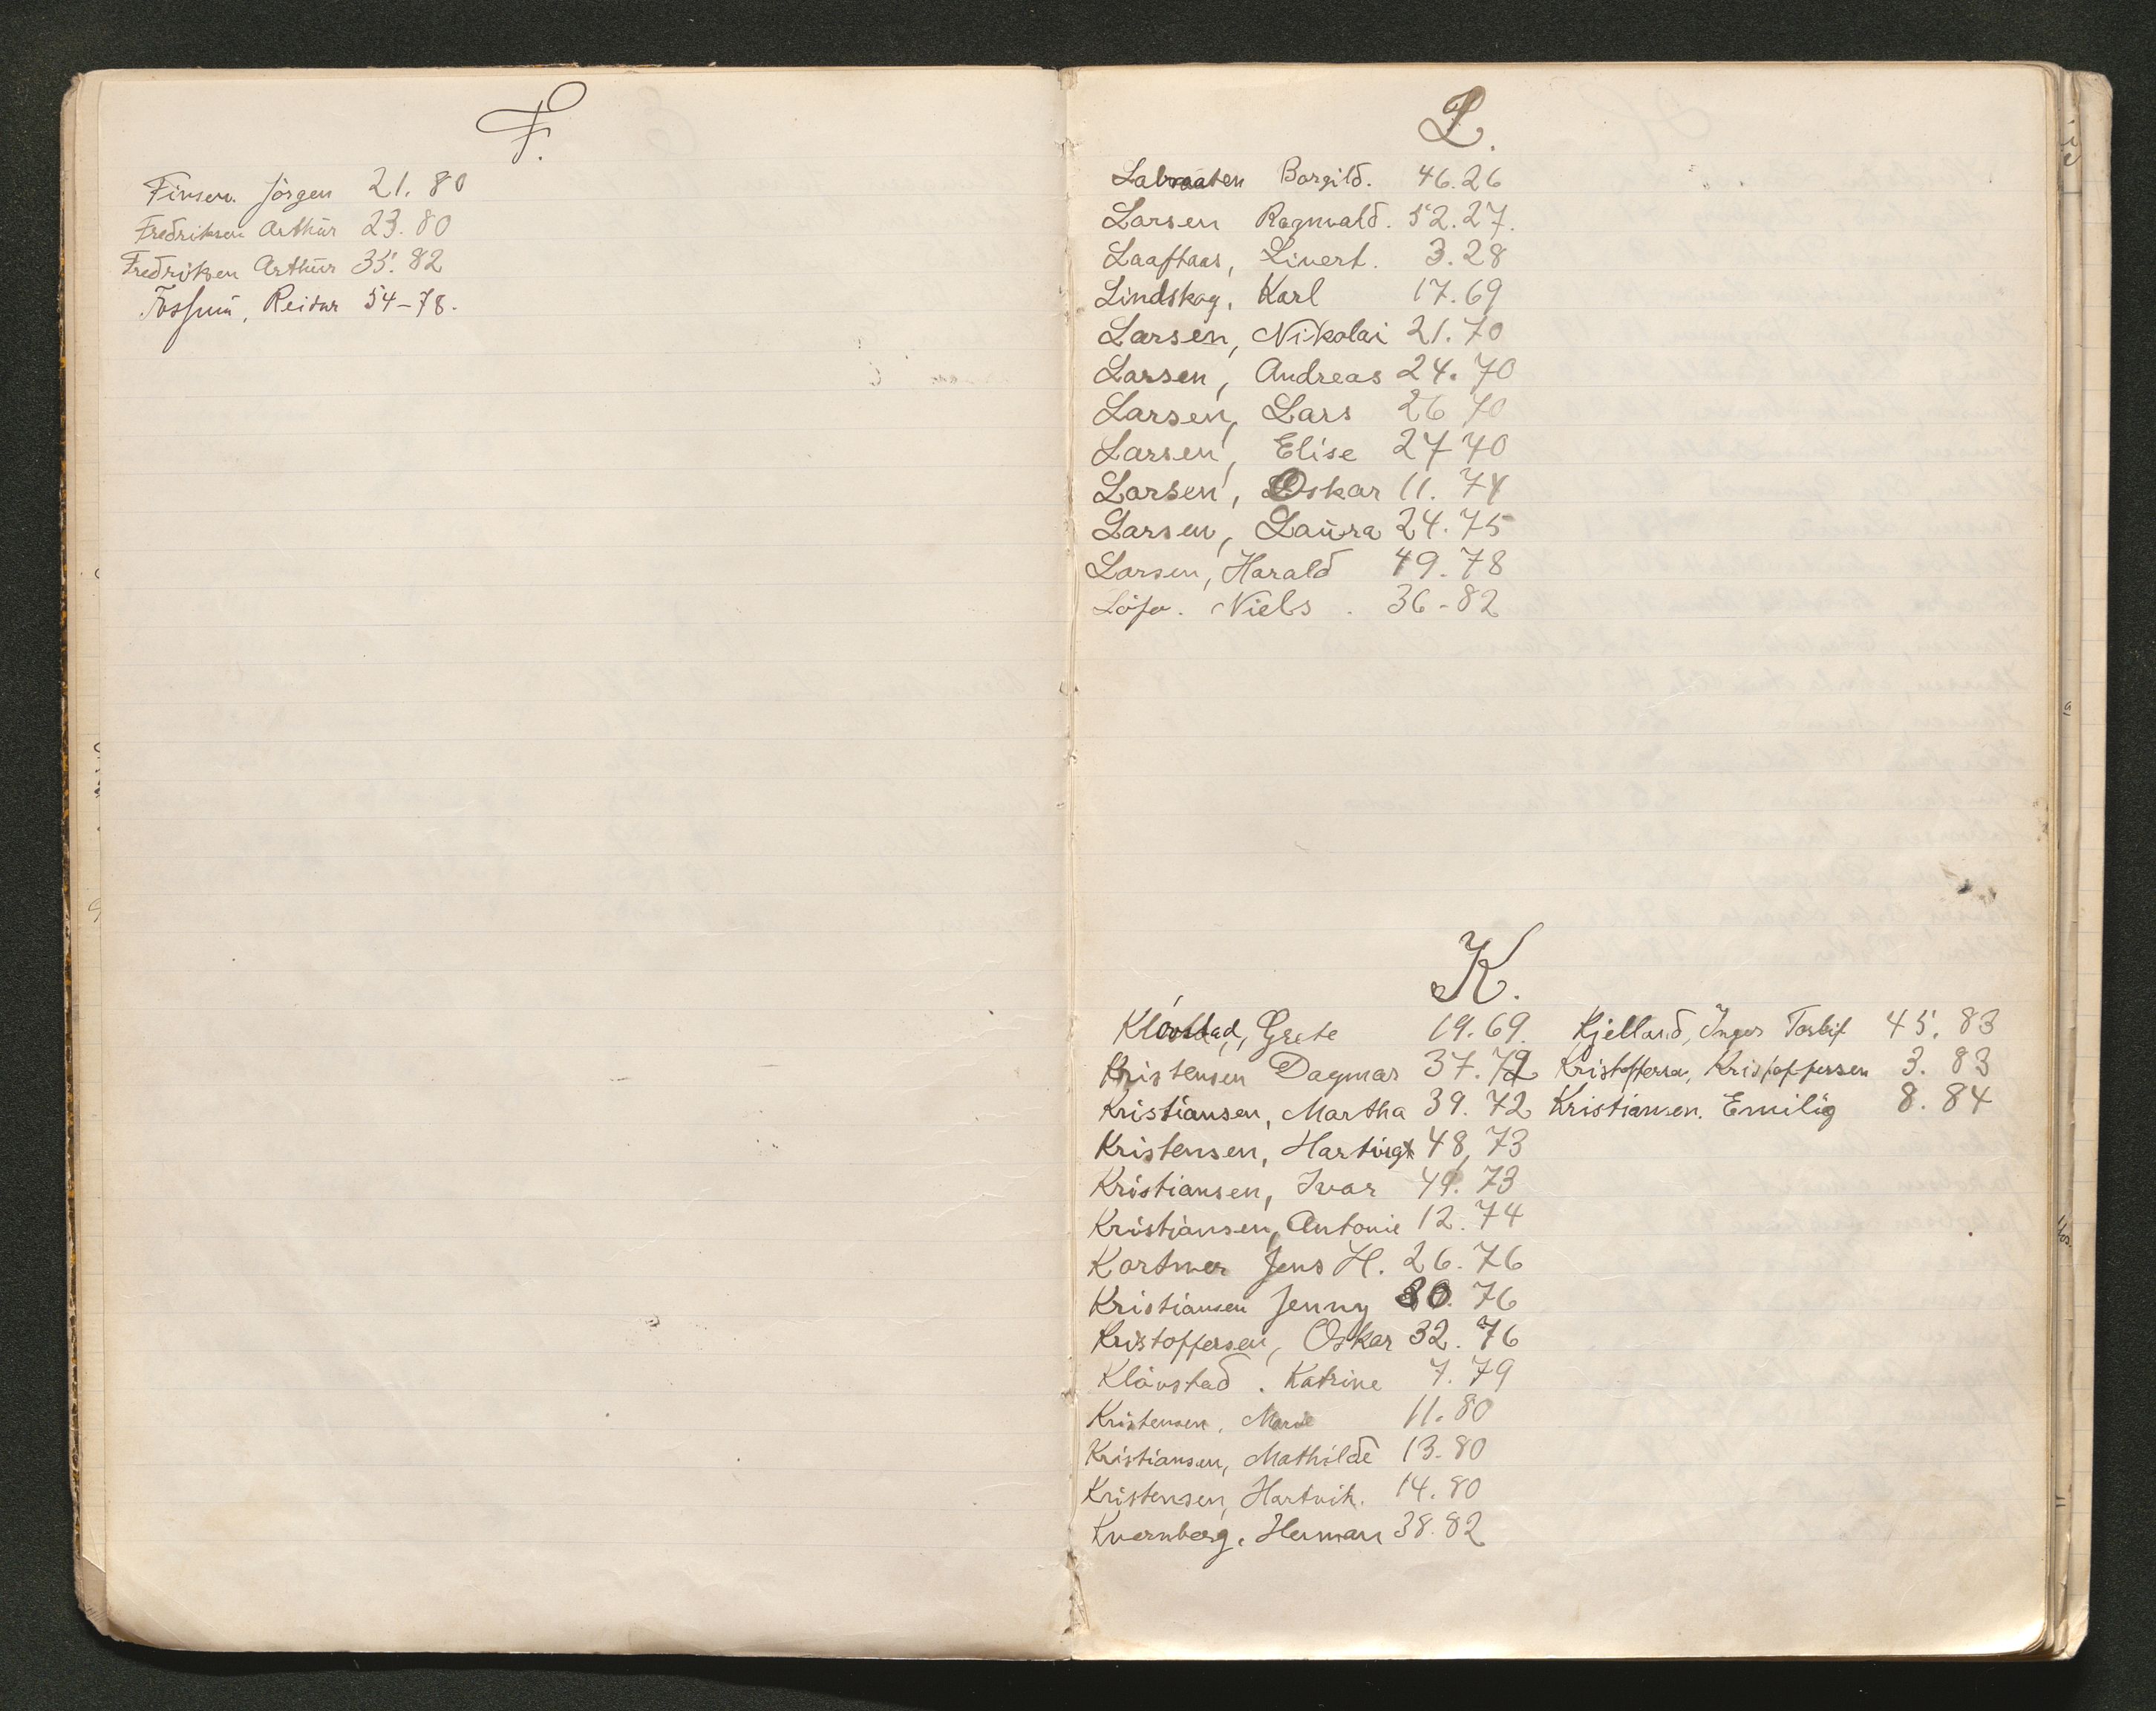 F.
Finsen. Jörgen 21. 80
Fredriksen Arthur 23. 80
Fredriksen Arthur 35. 82
Fossum, Reidar 54-78.
L.
Labraaten Borgild. 46.26
Larsen Ragnvald. 52.27.
Laaftaas, Sivert. 3.28
Lindskog, Karl 17.69
Larsen, Nikolai 21.70
Larsen, Andreas 24.70
Larsen, Lars 26 70
Larsen, Elise 27 70
Larsen, Oskar 11. 74
Larsen, Laura 24.75
Larsen, Harald 49.78
Niels. 36-82
K.
Klövstad, Grete 19.69.
Kristensen Dagmar 37.72
Kristiansen, Martha 39.72
Kristensen, Hartvigt 48, 73
Kristiansen, Ivar 49. 73
Kristiansen, Antonie 12.74
Kortner Jens H. 26.76
Kristiansen Jenny 30. 76
Kristoffersen, Oskar 32. 76
Klövstad. Katrine 7.79
Kristensen, Marie 11.80
Kristiansen, Mathilde 13.80
Kristensen, Hartvik. 14.80
Kvernberg, Herman 38.82
Kjelland, Inger 45. 83
Kristoffersen, Kristoffersen 3. 83
Kristiansen. Emilie 8. 84